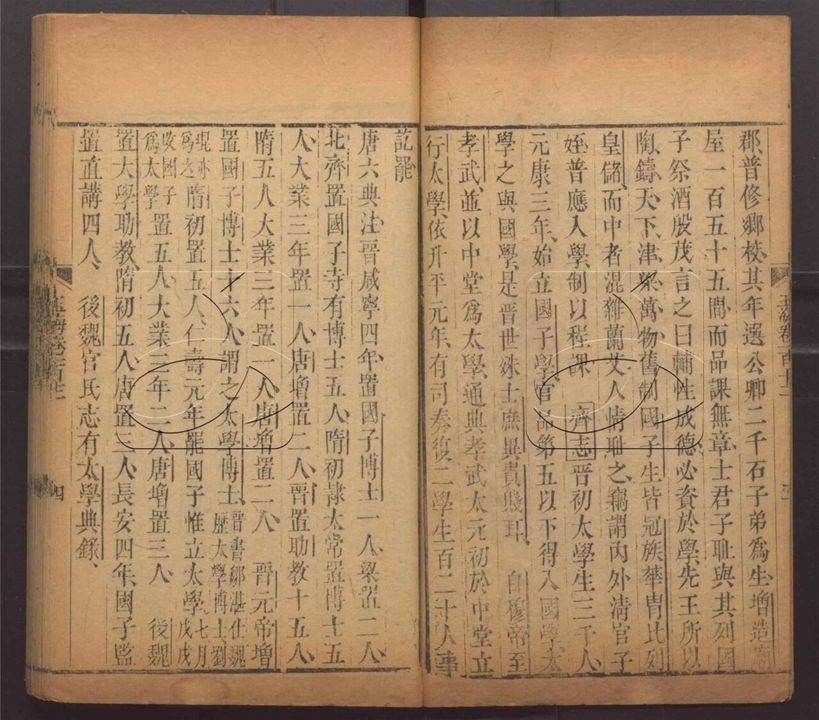 郡普修鄉校其年選公卿二千石子弟爲生增造
屋一百五十五間而品課無章士君子耻與其列國
子祭酒殷茂言之曰輔性成德必資於學先王所以
陶鑄天下津梁萬物舊制國子生皆冠族華胄比列
皇儲而中者混雜蘭艾人情耻之竊謂内外清官子
姪普應入學制以程課 齊志晉初太學生三千人
元康三年始立國子學官品第五以下得入國學太
學之與國學是晉世殊士庶異貴賤耳 自穆帝至
孝武並以中堂爲太學通典孝武太元初於中堂立
行太學依升平元年有司奏復二學生百二十人事
記罷
唐六典注晉咸寧四年置國子博士一人梁置二人
北齊置國子寺有博士五人隋初隸太常置博士五
人大業三年置一人唐增置二人晉置助教十五人
隋五人大業三年置一人唐增置二人 晉元帝增
置國子博士十六人謂之太學博士晉書鄒湛仕魏歷太學博士劉
現亦爲之隋初置五人仁壽元年罷國子惟立太學七月戊戌
改國子爲太學置五人大業三年二人唐增置三人 後魏
置大學助教隋初五人唐置三人長安四年國子監
置直講四人 後魏官氏志有太學典錄
玉海卷一百十二
四